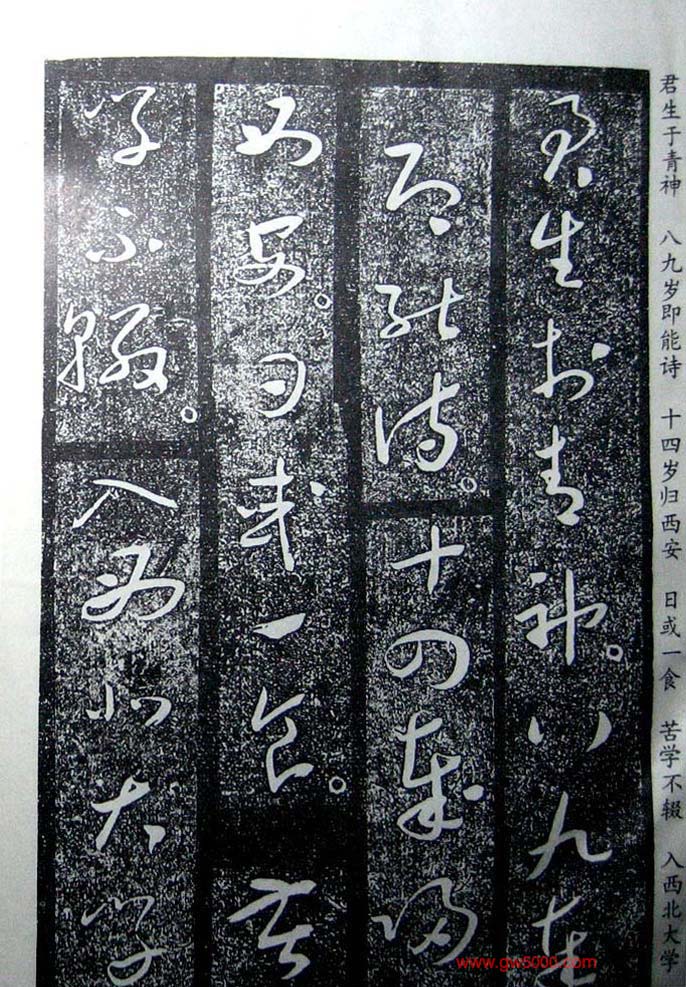 君生于青神 八九岁即能诗 十四岁归西安 日或一食 苦学不辍 入西北大学
君生於青神。八九歲
即能詩。十四歲歸
西安。日或一食。苦
學不輟。入西北大學
www.gw5000.com